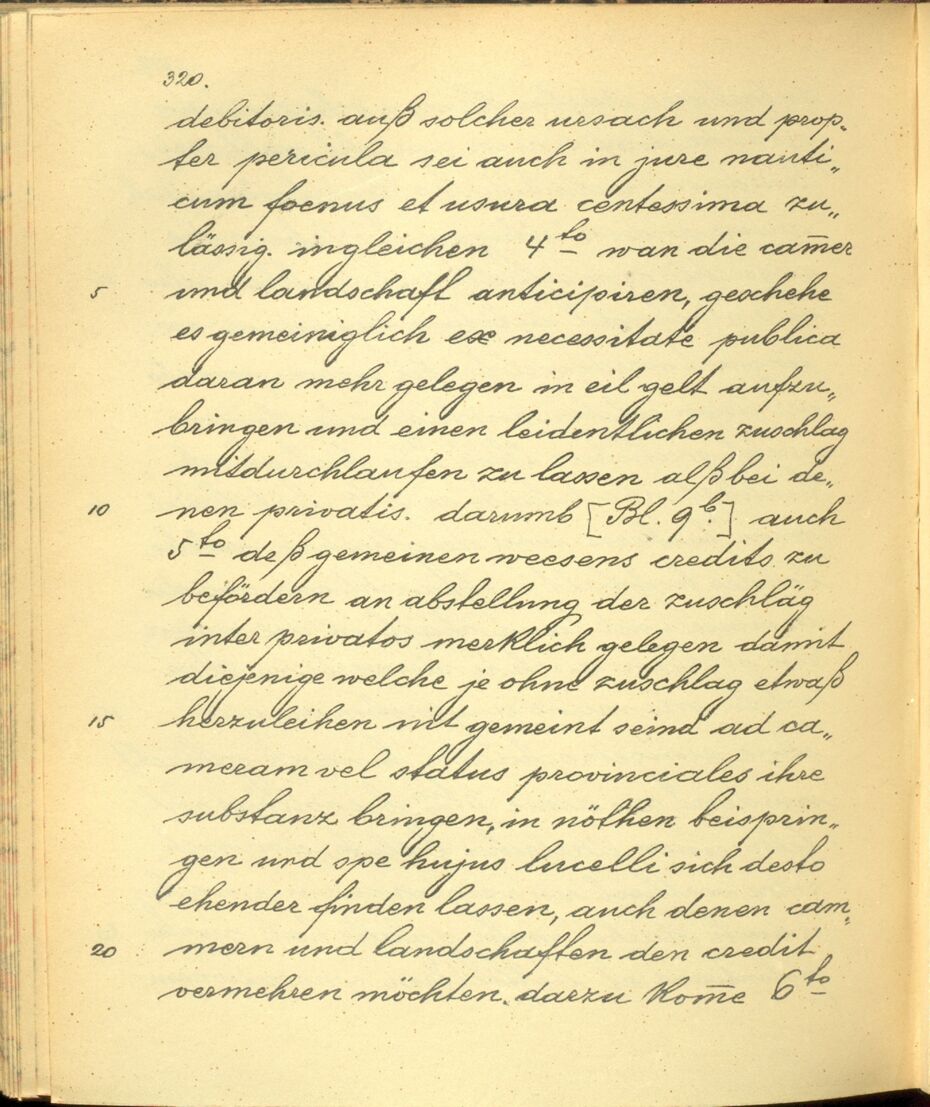 320.
debitoris. auß solcher ursach und prop„
ter pericula sei auch in jure nauti„
cum foenus et usura centessima zu„
lässig. ingleichen 4to wan die cam̄er
5 und landschaft anticipiren, geschehe
es gemeiniglich ex necessitate publica
daran mehr gelegen in eil gelt aufzu„
bringen und einen leidentlichen zuschlag
mitdurchlaufen zu lassen alß bei de„
10 nen privatis. darumb [Bl. 9b.] auch
5to deß gemeinen weesens credits zu
befördern an abstellung der zuschläg
inter privatos merklich gelegen damit
diejenige welche je ohne zuschlag etwaß
15 herzuleihen nit gemeint seind ad ca„
meram vel status provinciales ihre
substanz bringen, in nöthen beisprin„
gen und spe hujus lucelli sich desto
ehender finden lassen, auch denen cam„
20 mern und landschaften den credit
vermehren möchten. darzu kom̄e 6to